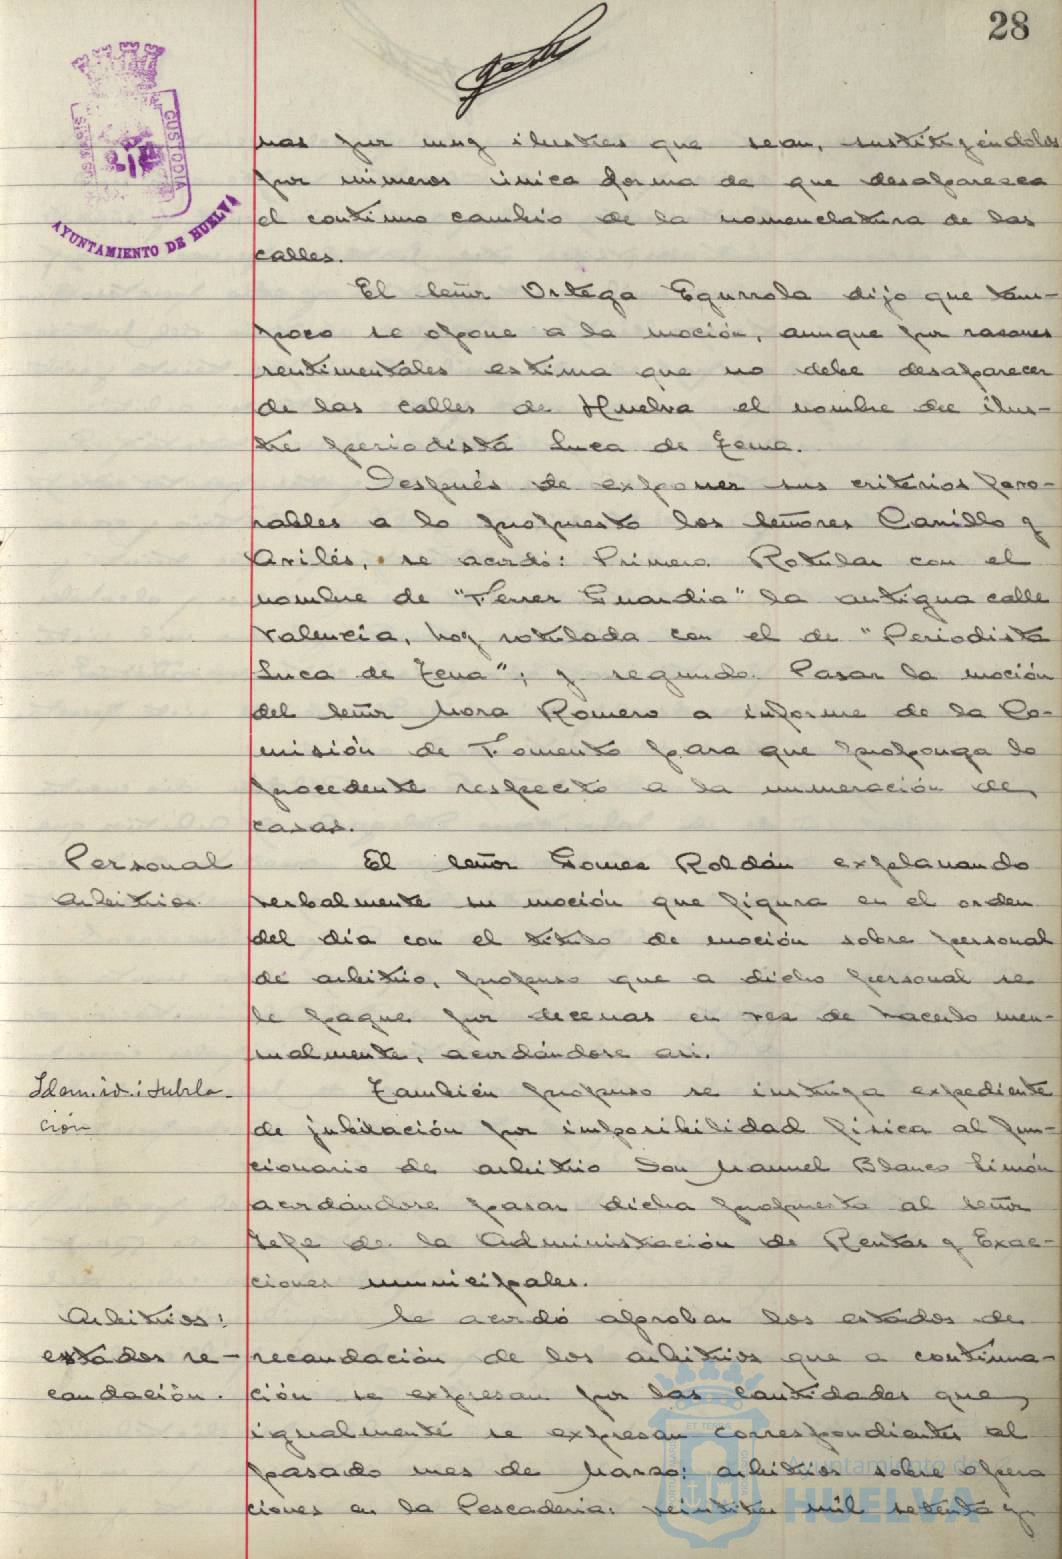 28
CUSTODIA
AYUNTAMIENTO DE HUELVA
nas por muy ilustres que sean, sustituyéndolos
por números única forma de que desaparezca
el contínuo cambio de la nomenclatura de las
calles.
El señor Ortega Egurrola dijo que tam-
poco se opone a la moción, aunque por razones
sentimentales estima que no debe desaparecer
de las calles de Huelva el nombre del ilus-
tre periodista Luca de Tena.
Después de exponer sus criterios favo-
rables a lo propuesto los señores Carrillo y
Avilés, se acordó: Primero. Rotular con el
nombre de "Ferrer Guardia" la antigua calle
Valencia, hoy rotulada con el de "Periodista
Luca de Tena"; y segundo. Pasar la moción
del señor Mora Romero a informe de la Co-
misión de Fomento para que proponga lo
procedente respecto a la numeración de
casas.
Personal
Arbitrios.
El señor Gomez Roldán explanando
verbalmente su moción que figura en el orden
del día con el título de moción sobre personal
de arbitrio, propuso que a dicho personal se
le pague por decenas en vez de hacerlo men-
sualmente, acordándose asi.
Idem. id.: Jubila-
ción
También propuso se instruya expediente
de jubilación por imposibilidad física al fun-
cionario de arbitrio Don Manuel Blanco Simón
acordándose pasar dicha propuesta al señor
Jefe de la Administración de Rentas y Exac-
ciones municipales.
Arbitrios:
estados re-
caudación.
Se acordó aprobar los estados de
recaudación de los arbitrios que a continua-
ción se expresan por las cantidades que
igualmente se expresan correspondientes al
pasado mes de Marzo: arbitrios sobre opera
ciones en la Pescadería: veintitres mil setenta y
Ayuntamiento de
HUELVA